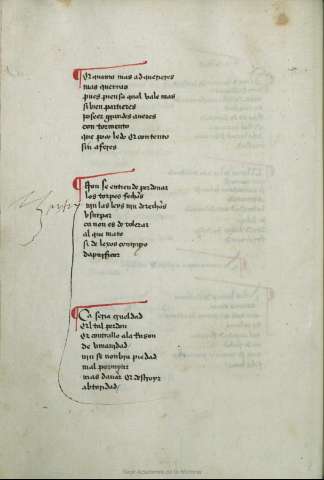 Et quanto mas adquereres
mas querras
pues piensa qual vale mas
si bien partieres
posser grandes aueres
con tormento
que poco ledo et contento
sin aferes
Non se entiende perdonar
los torpes fechos
nin las leys nin derechos
vsurpar
ca non es de tolerar
al que mato
si de lexos
Ca seria crueldad
el tal perdon
et contrallo a la Razon
de vmanidad
nin se nonbra piedad
mal permytir
mas dañar et destroyr
abtoridad
Real Academia de la Historia